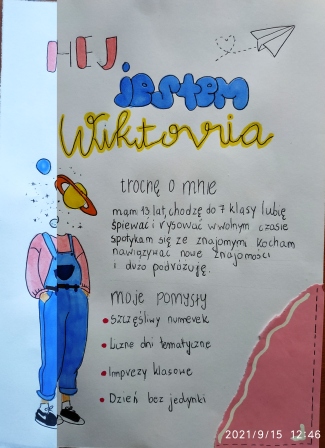 HEJ
jestem
Wiktoria
trochę o mnie
mam 13 lat, chodzę do 7 klasy lubię
śpiewać i rysować w wolnym czasie
spotykam się ze znajomymi. Kocham
nawiązywać nowe znajomości
i dużo podróżuję.
moje pomysły
• Szczęśliwy numerek
• Liczne dni tematyczne
• Imprezy klasowe
• Dzień bez jedynki
2021/9/15 12:46